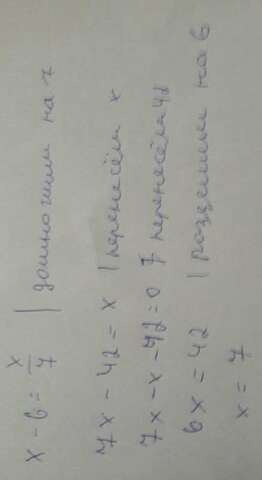 x - 6 = x/7 | домножим на 7
7x - 42 = x | перенесём x
7x - x - 42 = 0 | перенесём 42
6x = 42 | разделим на 6
x = 7